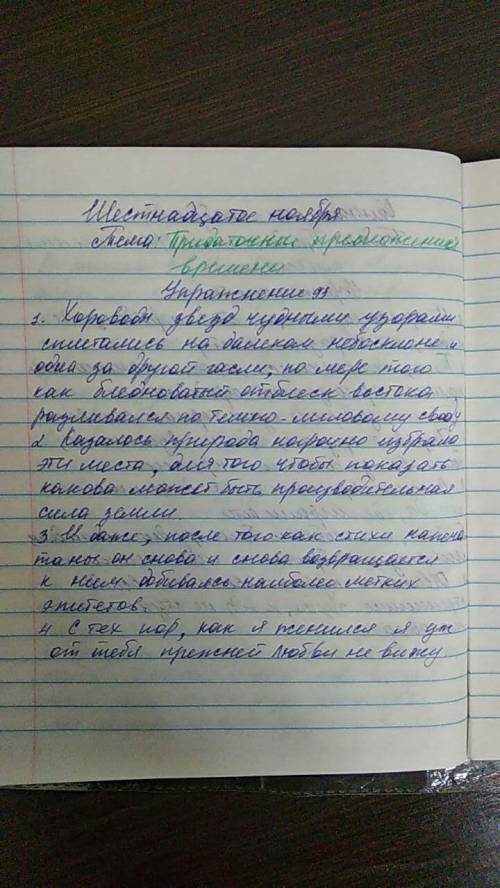 Шестнадцатое ноября
Тема: Придаточные предложения
времени
Упражнение 93
1. Хороводы звёзд чудными узорами
сплетались на далеком небосклоне и
одна за другой гасли, по мере того
как бледноватый отблеск востока
разливался по темно-лиловому своду
2. Казалось природа нарочно избрала
эти места, для того чтобы показать
какова может быть производительная
сила земли.
3. И даже, после того как стихи напеча
таны он снова и снова возвращается
к ним добиваясь наиболее метких
эпитетов.
4 С тех пор, как я женился я уж
от тебя прежней любви не вижу